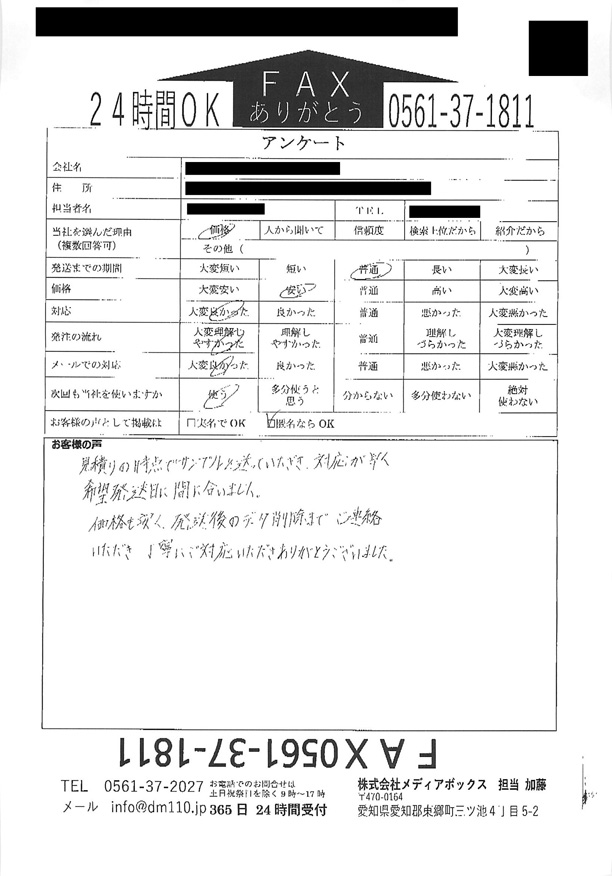 FAX
ありがとう
24時間OK
0561-37-1811
アンケート
会社名
住 所
担当者名 TEL
当社を選んだ理由（複数回答可） 価格 人から聞いて 信頼度 検索上位だから 紹介だから
その他（ ）
発送までの期間 大変短い 短い 普通 長い 大変長い
価格 大変安い 安い 普通 高い 大変高い
対応 大変良かった 良かった 普通 悪かった 大変悪かった
発注の流れ 大変理解しやすかった 理解しやすかった 普通 理解しづらかった 大変理解しづらかった
メールでの対応 大変良かった 良かった 普通 悪かった 大変悪かった
次回も当社を使いますか 使う 多分使うと思う 分からない 多分使わない 絶対使わない
お客様の声として掲載は □実名でOK ☑匿名ならOK
お客様の声
見積りの時点でサンプルを送っていただき、対応が早く
希望発送日に間に合いました。
価格も安く、発送後のデータ削除までご連絡
いただき 丁寧にご対応いただきありがとうございました。
FAX0561-37-1811
TEL 0561-37-2027 お電話でのお問合せは
土日祝祭日を除く9時～17時
メール info@dm110.jp 365日24時間受付
株式会社メディアボックス 担当 加藤
〒470-0164
愛知県愛知郡東郷町三ツ池4丁目5-2